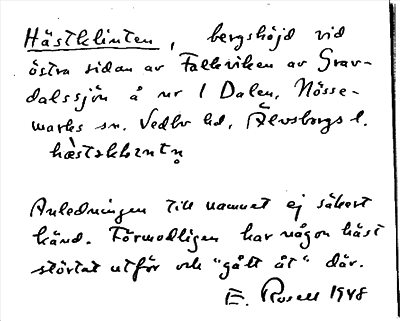 Hästklinten, bergshöjd vid
östra sidan av Fallviken av Grav-
dalssjön å nr 1 Dalen, Nösse-
marks sn. Vedbo hd, Älvsborgs l.
Anledningen till namnet ej säkert
känd. Förmodligen har någon häst
störtat utför och "gått åt" där.
E. Rosell 1948